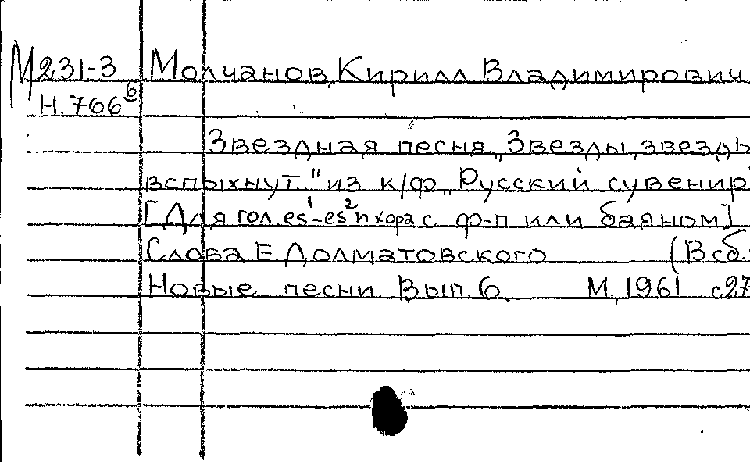 М231-3 Молчанов, Кирилл Владимирович
Н.766⁶
Звездная песня „Звезды, звезды
вспыхнут..." из к/ф „Русский сувенир"
[Для гол. es¹-es² и хора с ф-п или баяном]
Слова Е. Долматовского (В сб.:
Новые песни Вып. 6. М, 1961 с27